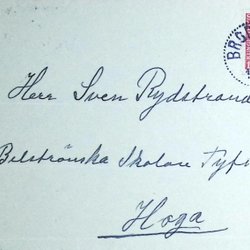 BRÖ
Herr Sven Rydstrand
Belstrånska Skolan Tyft
Hoga